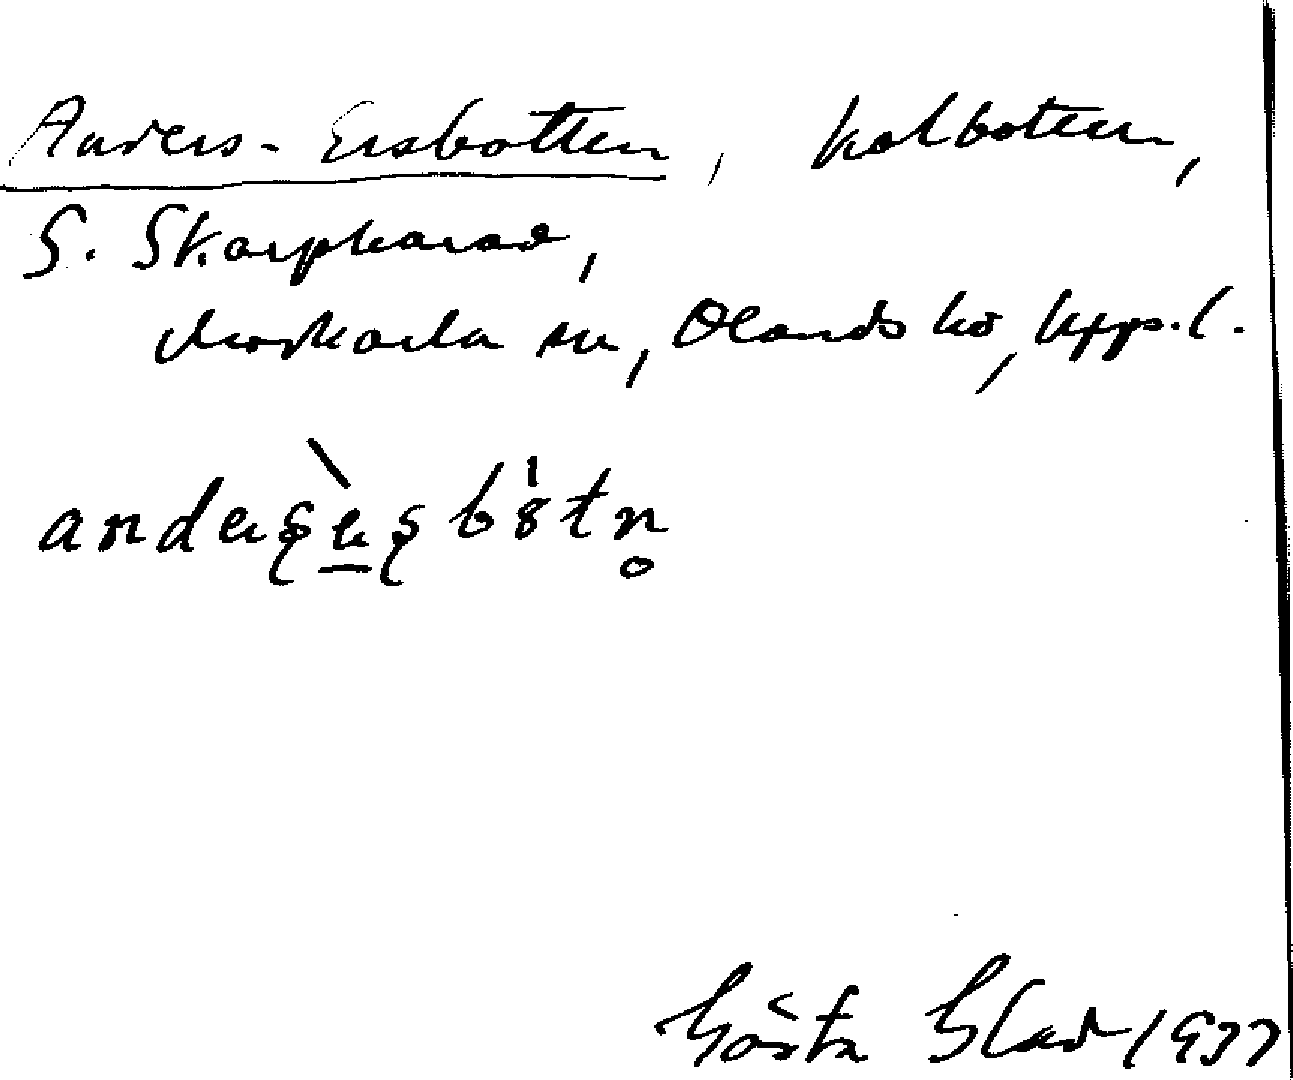 Anders-Ersbotten, kolbotten,
S. Skarpharad,
Morkarla sn, Olands hd, Upps. l.
andeʂeʂbȣtn̥
Gösta Blad 1937